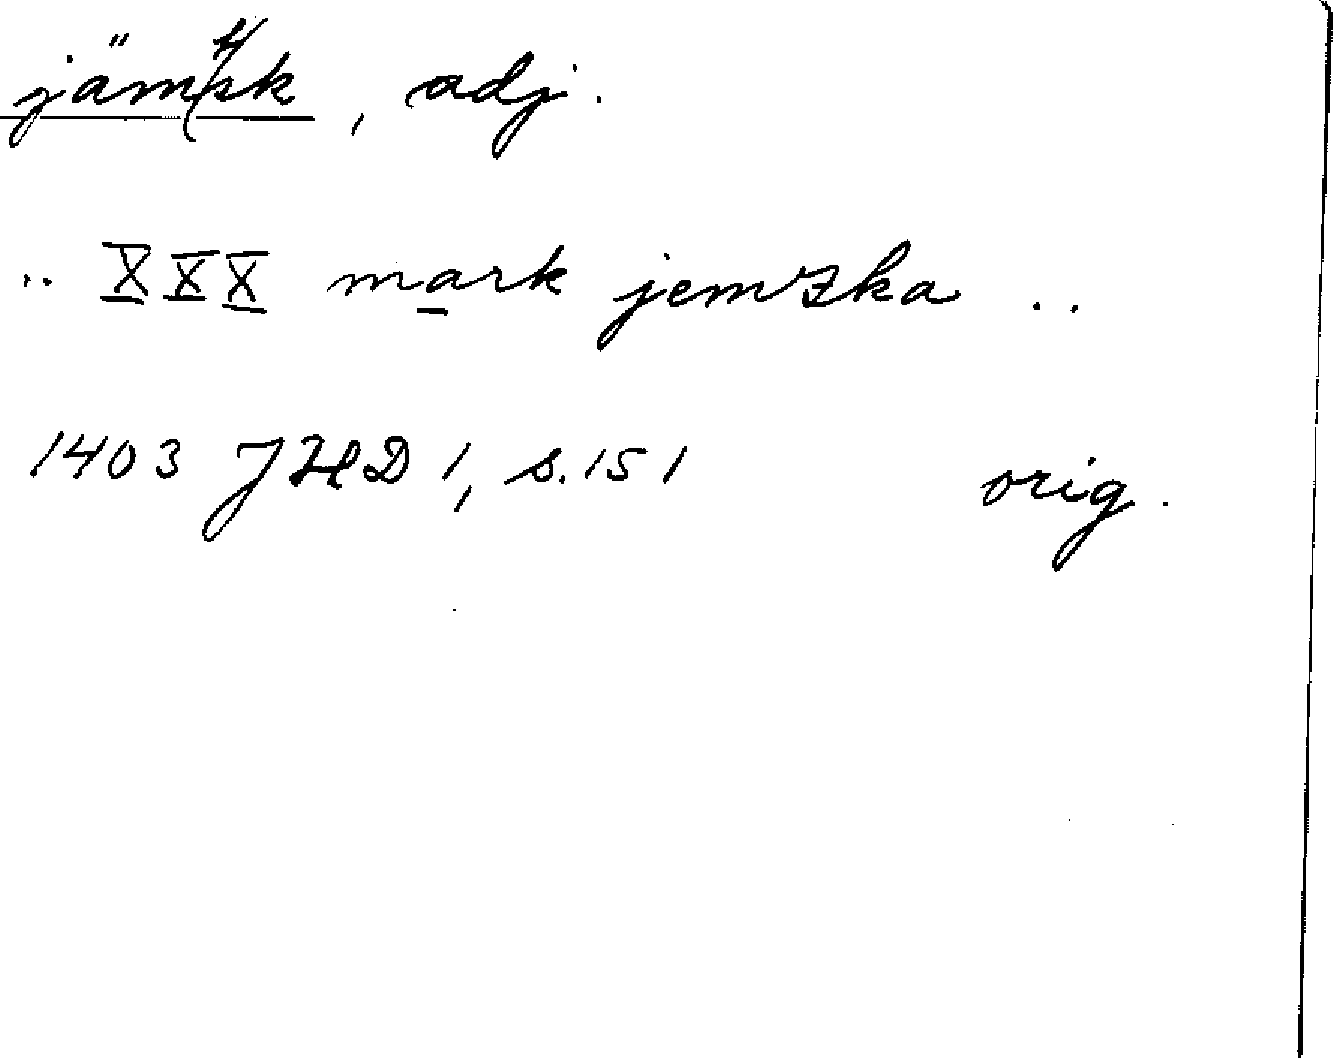 jämtsk, adj.
.. XXX mark jemzka ..
1403 JHD 1, s. 151 orig.